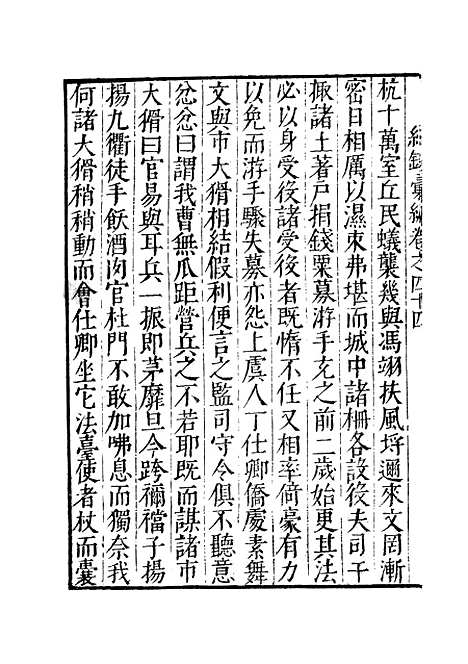 紀錄彙編卷之四十四
杭十萬室丘民蟻襲幾與馮翊扶風埒邇來文罔漸
密日相厲以濕束弗堪而城中諸柵各設役夫司干
掫諸土著戶捐錢粟募游手充之前二歲始更其法
必以身受役諸受役者既惰不任又相率倚豪有力
以免而游手驟失募亦怨上虞人丁仕卿僑處素舞
文與市大猾相結假利便言之監司守令俱不聽意
忿忿曰謂我曹無瓜距營兵之不若耶既而謀諸市
大猾曰官易與耳兵一振即茅靡旦今跨襧襠子揚
揚九衢徒手飲酒肉官杜門不敢加咈息而獨奈我
何諸大猾稍稍動而會仕卿坐它法臺使者杖而囊